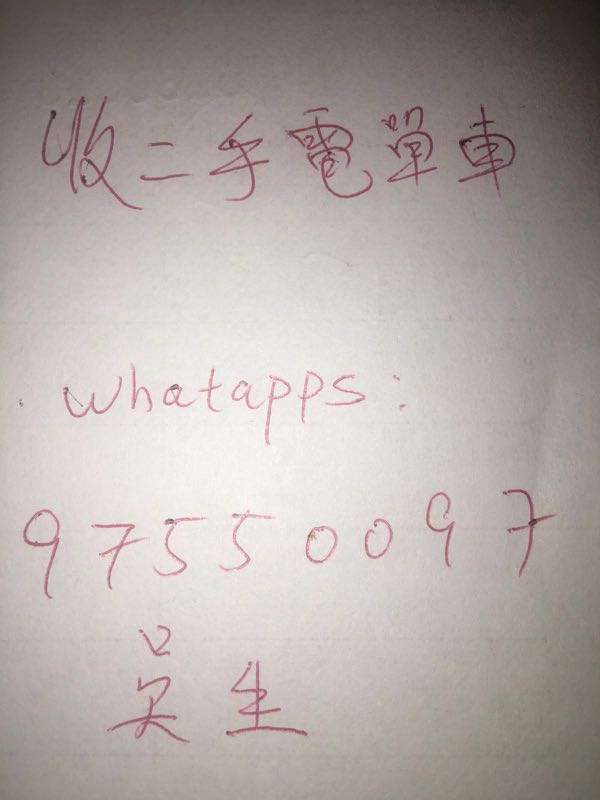 收二手電單車
whatapps:
97550097
吳生